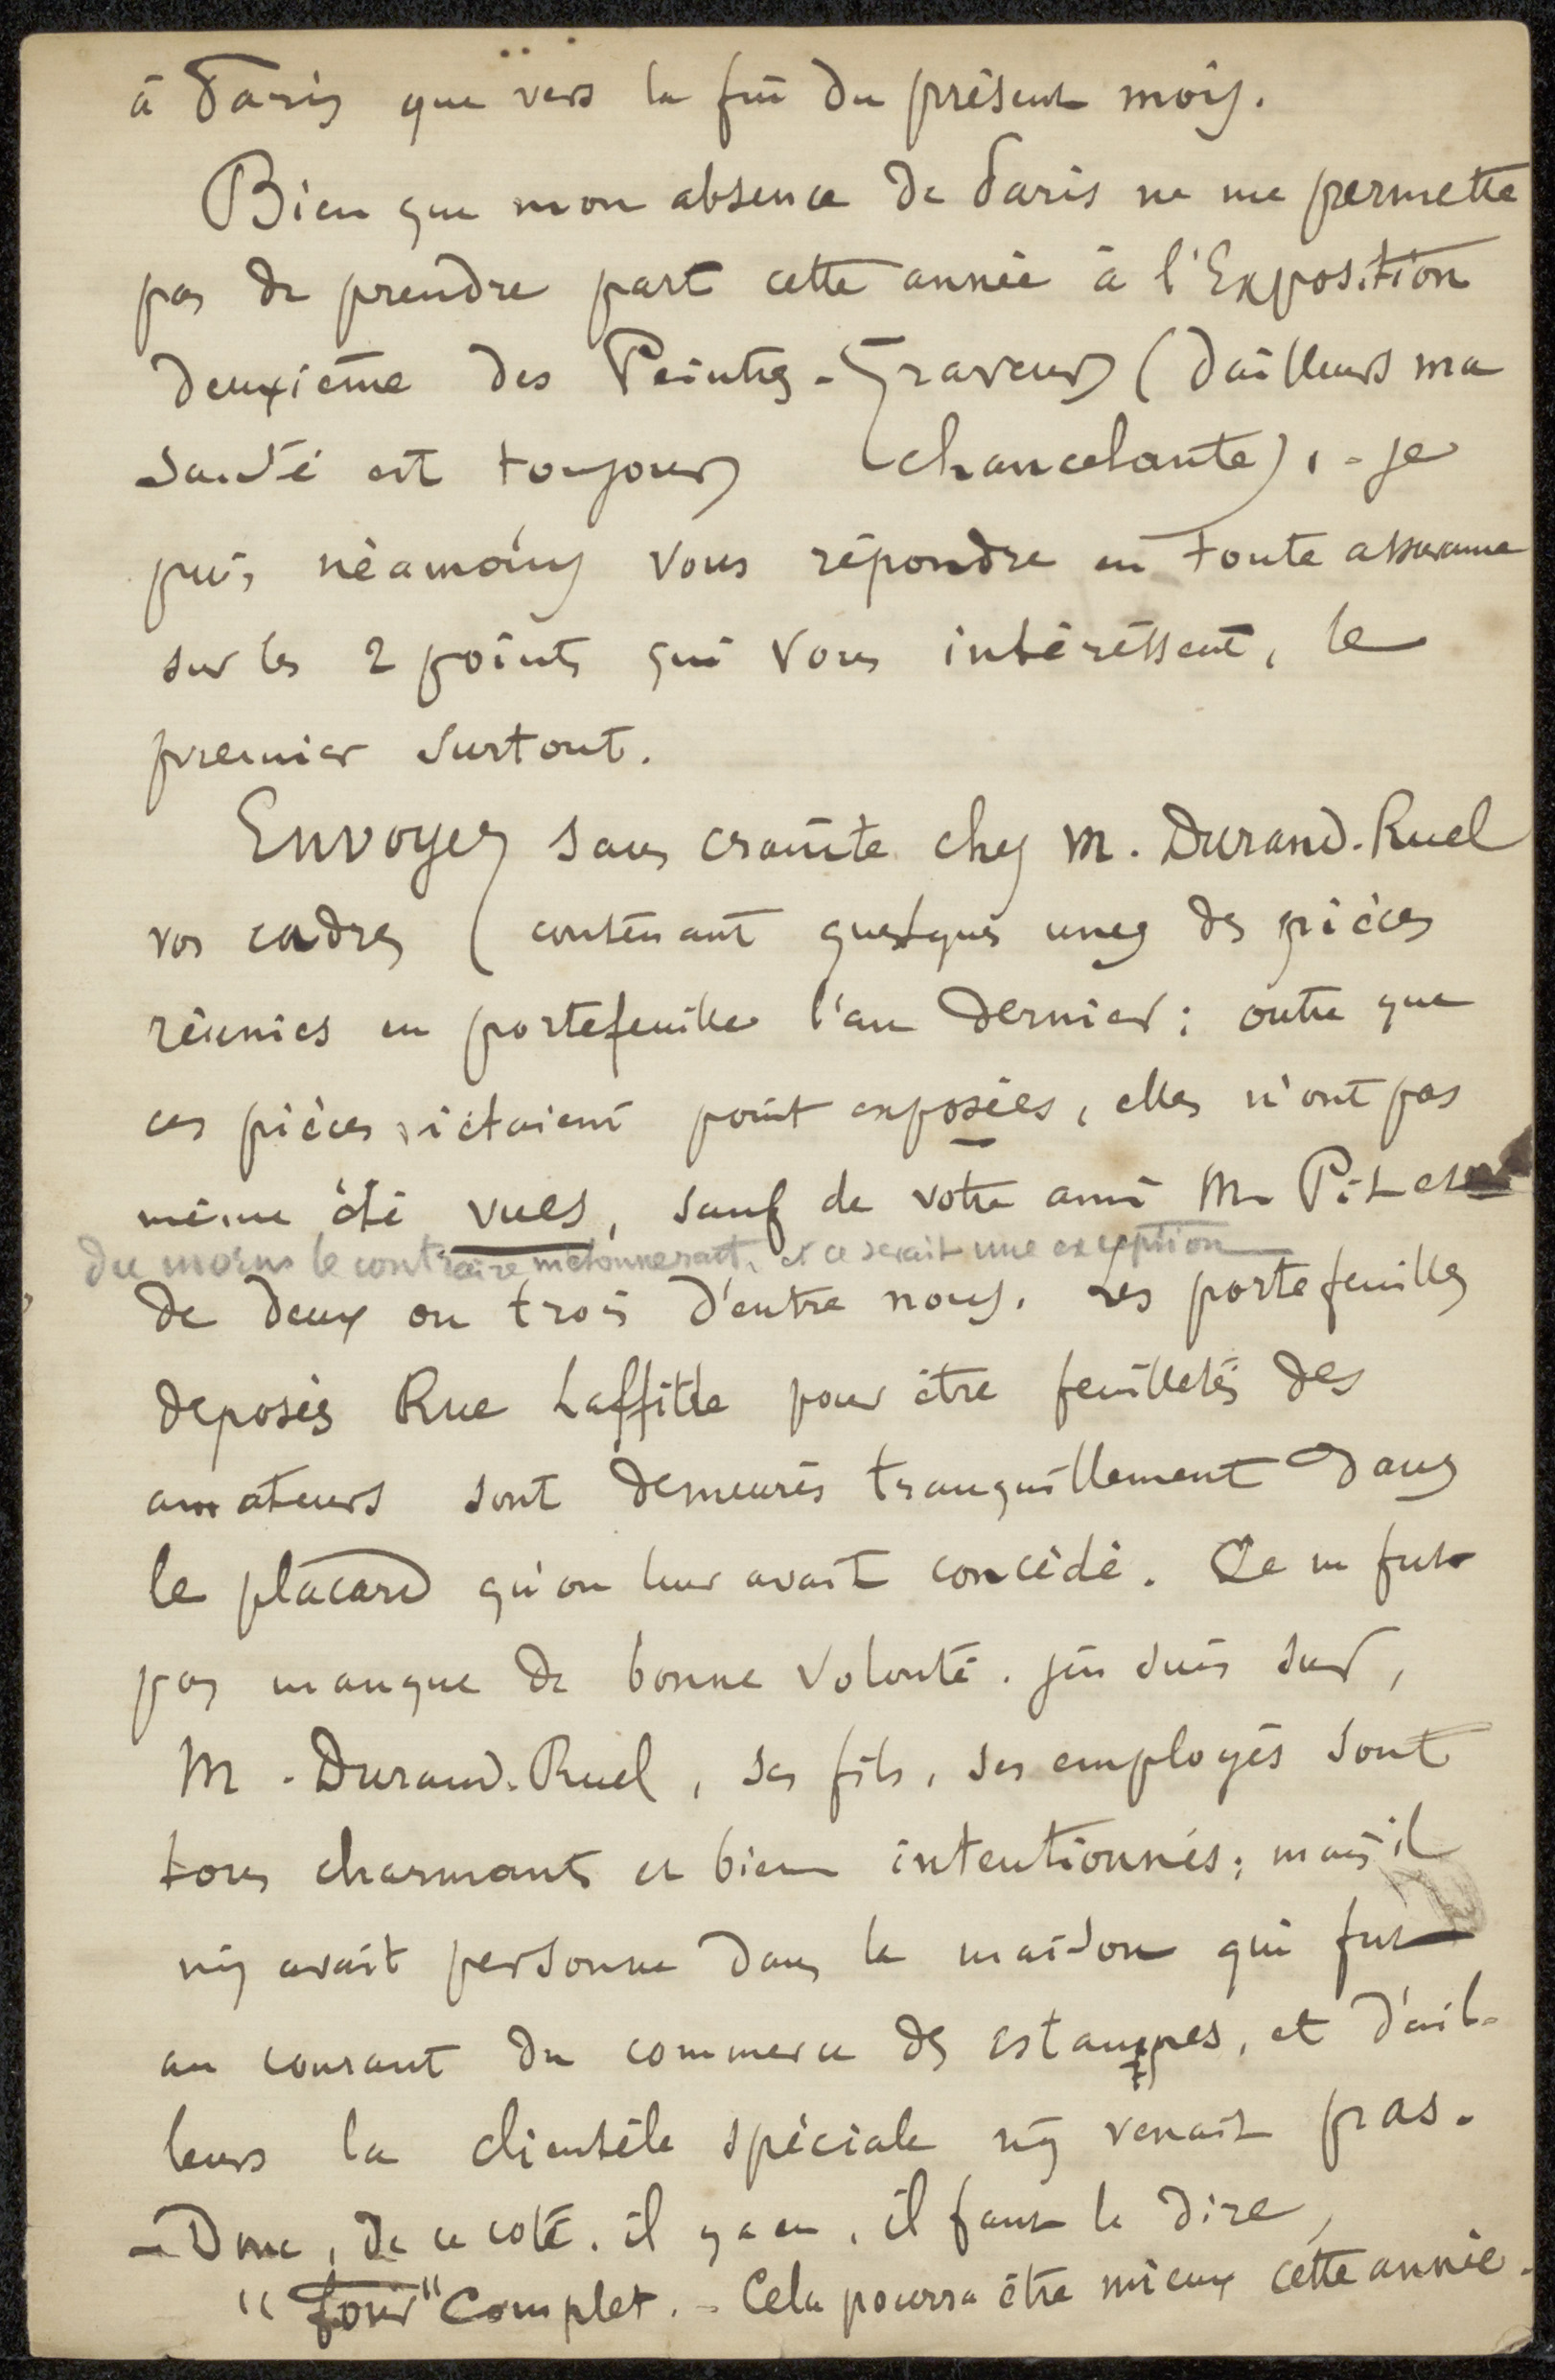 à Paris que vers la fin du présent mois.
Bien que mon absence de Paris ne me permette
pas de prendre part cette année à l'Exposition
deuxième des Peintres-Graveurs (d'ailleurs ma
santé est toujours chancelante), - je
puis néamoins vous répondre en toute assurance
sur les 2 points qui vous intéréssent, le
premier surtout.
Envoyez sans crainte chez M. Durand-Ruel
vos cadres (contenant quelques unes des pièces
réunies en portefeuille l'an dernier ; outre que
ces pièces n'étaient point exposées, elles n'ont pas
même été vues, sauf de votre ami M.
du moins le contraire m'étonnerait, et ce serait une exception
de deux ou trois d'entre nous. Les portefeuilles
deposés Rue Laffitte pour être feuilletés des
amateurs sont demeurés tranquillement dans
le placard qu'on leur avait concédé. Ce ne fut
pas manque de bonne volonté. j'en suis sur,
M. Durand-Ruel, ses fils, ses employés sont
tous charmants et bien intentionnés ; mais il
n'y avait personne dans la maison qui fut
au courant du commerce des estampes, et d'ail-
leurs la clientèle spéciale n'y venait pas.
- Donc, de ce coté, il y a eu, il faut le dire,
"four" complet. - Cela pourra être mieux cette année.